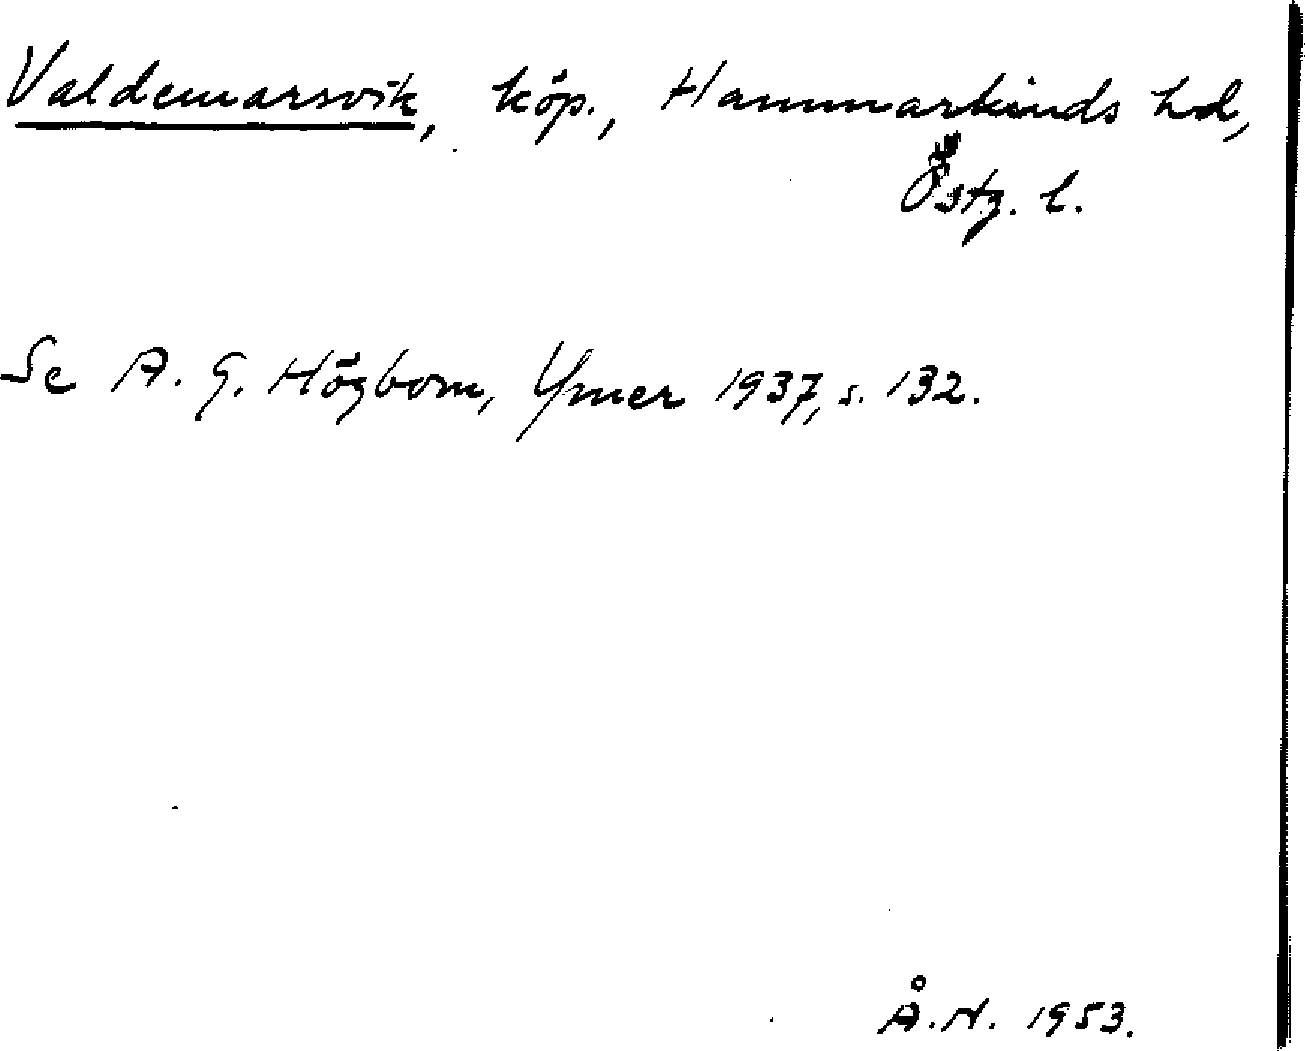 Valdemarsvik, köp., Hammarkinds hd,
Östg. l.
Se A. G. Högbom, Ymer 1937, s. 132.
Å.N. 1953.